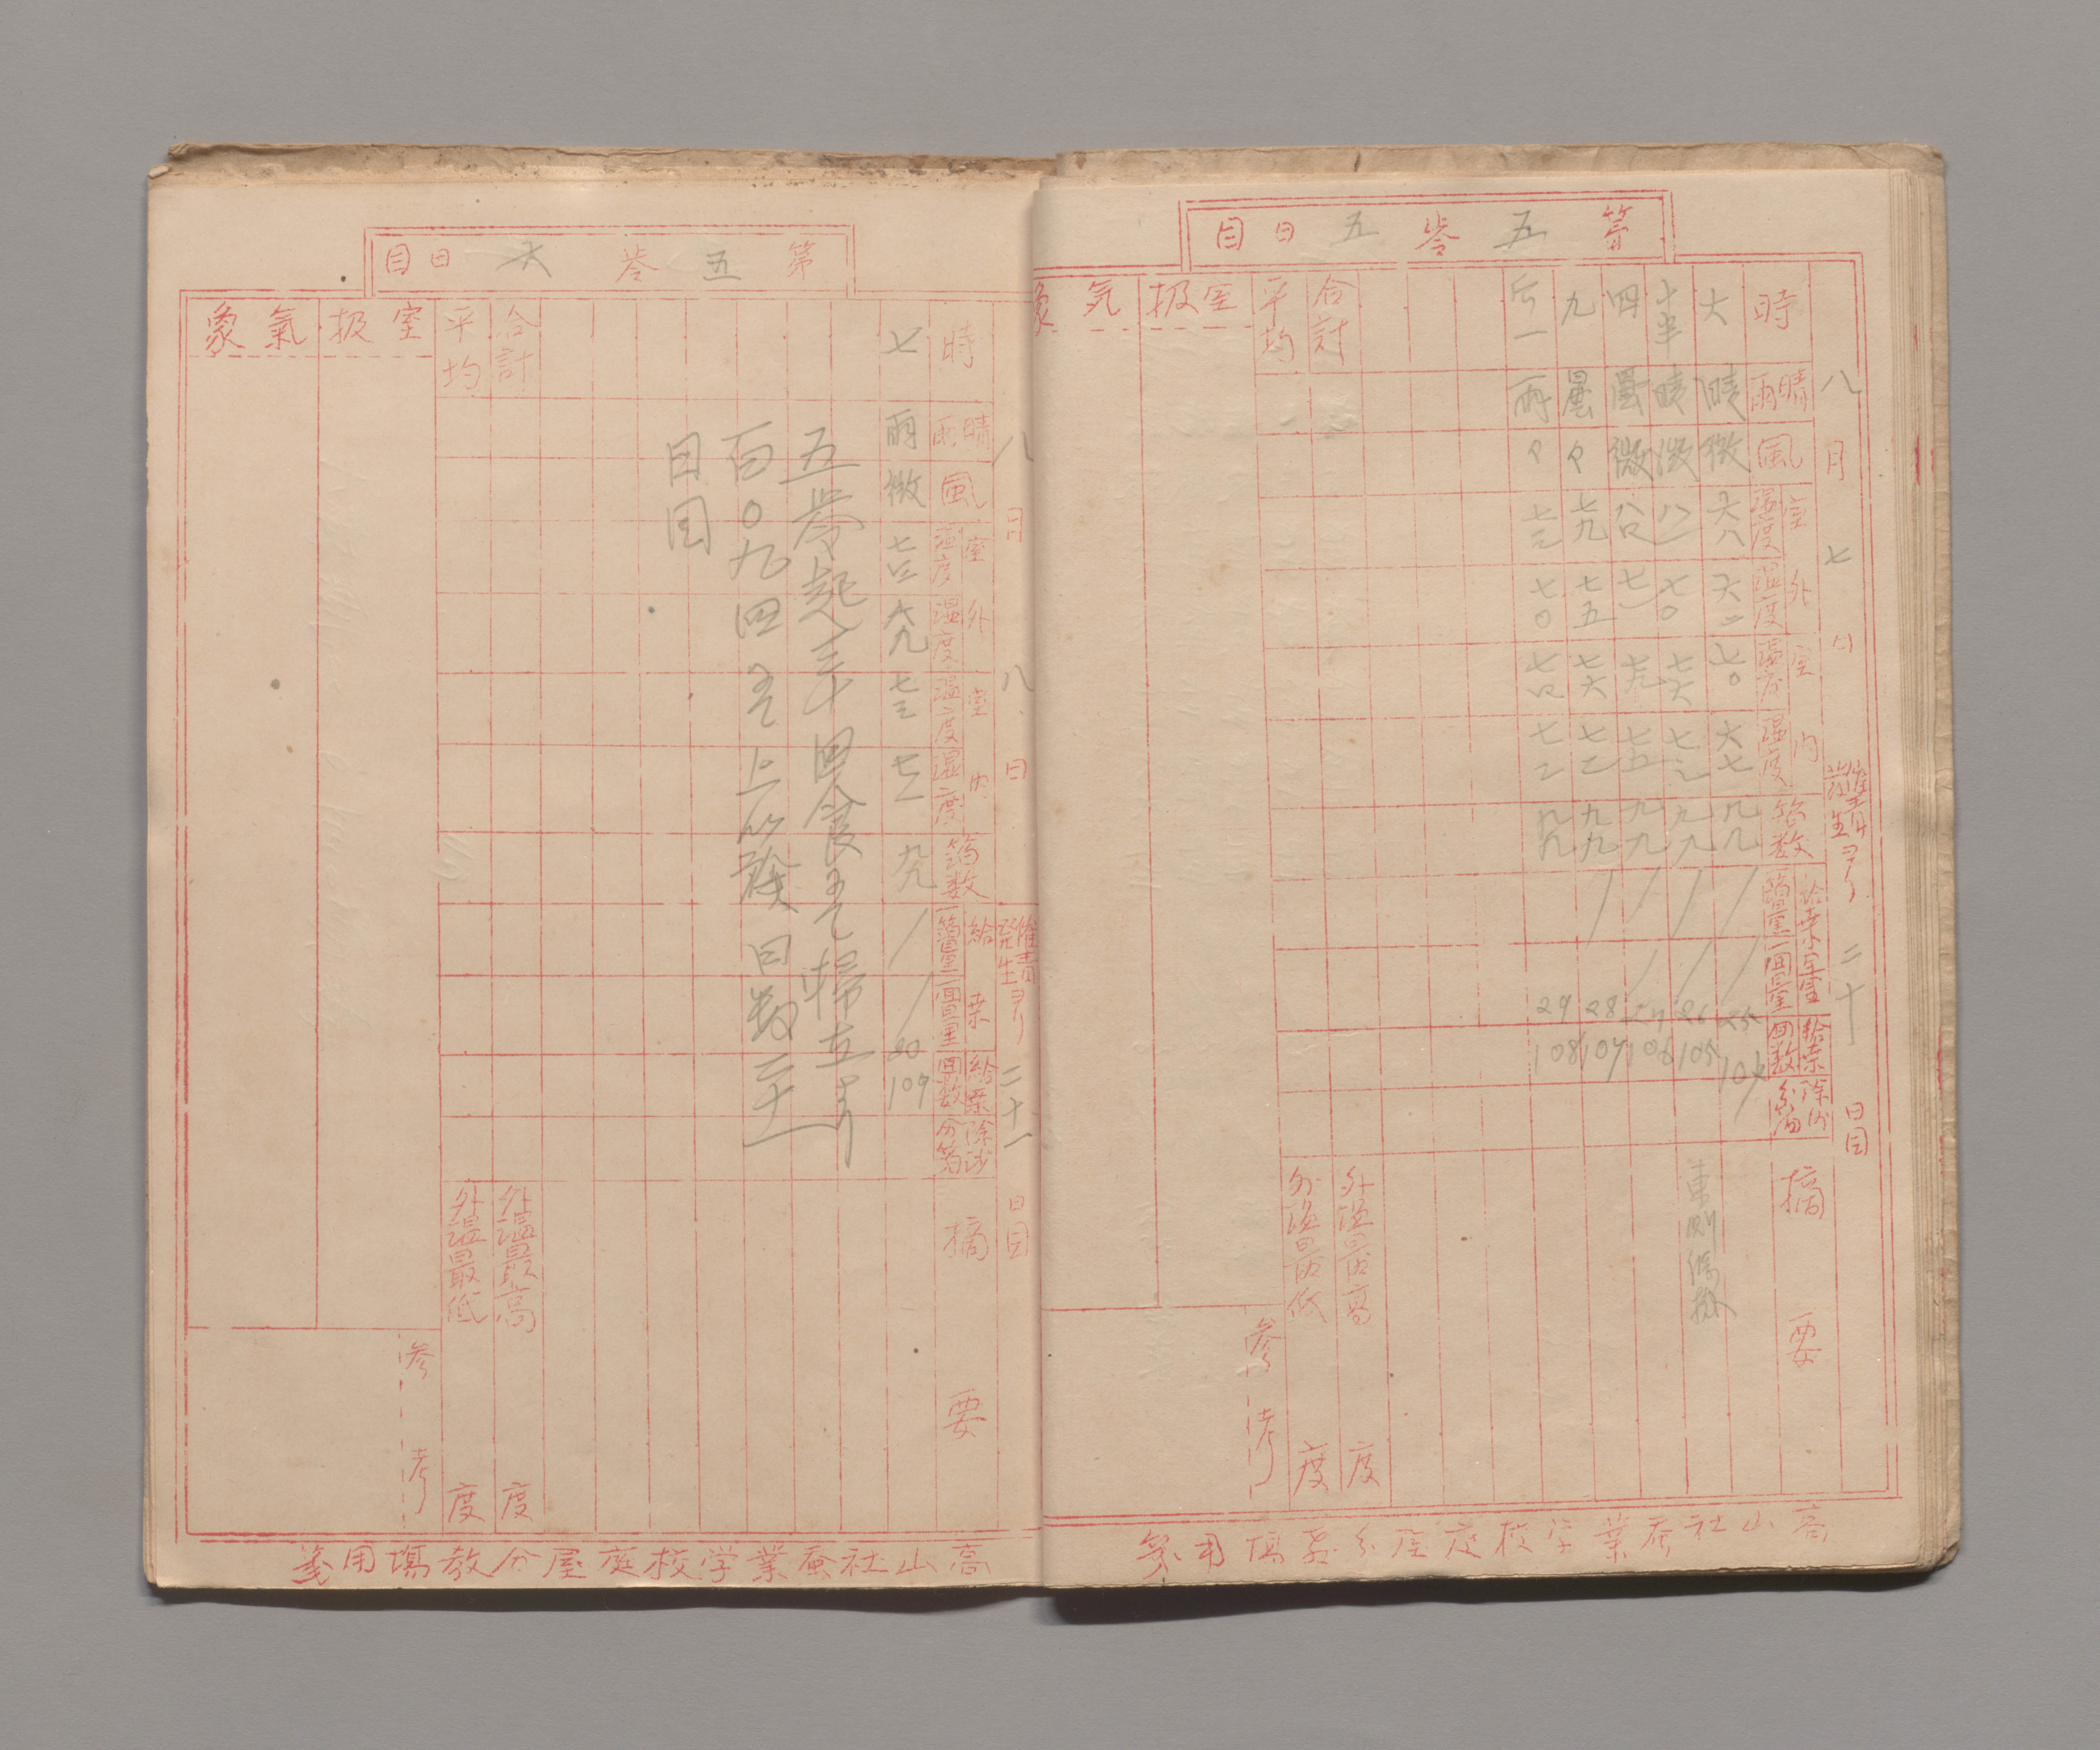 第五令五日目
八月七日 催青発生ヨリ二十日目
時 六 十半 四 九 后一
晴雨 晴 晴 曇 曇 雨
風 微 微 微 〃 〃
室外 温度 六八 八一 八〇 七九 七三
湿度 六二 七〇 七一 七五 七〇
室内 温度 七〇 七六 七九 七六 七四
湿度 六七 七三 七五 七二 七二
箔数 九九 九九 九九 九九 九九
給桑 一箔量
一回量
給桑回数 25 26 27 28 29
104 105 106 107 108
除沙 分箔
摘要
合計
平均
外温最高 度
外温最低 度
室扱
気象
参考
高山社蚕業学校庭屋分教場用箋
第五令六日目
八月八日 催青発生ヨリ二十一日目
時 七
晴雨 雨
風 微
室外 温度 七四
湿度 六九
室内 温度 七三
湿度 七一
箔数 九九
給桑 一箔量
一回量
給桑回数 30 109
除沙 分箔
摘要
五令起三十回食ニテ掃立ヨリ
百〇九回ニテ上簇日数二十一
日目
合計
平均
外温最高 度
外温最低 度
室扱
氣象
参考
高山社蚕業学校庭屋分教場用箋